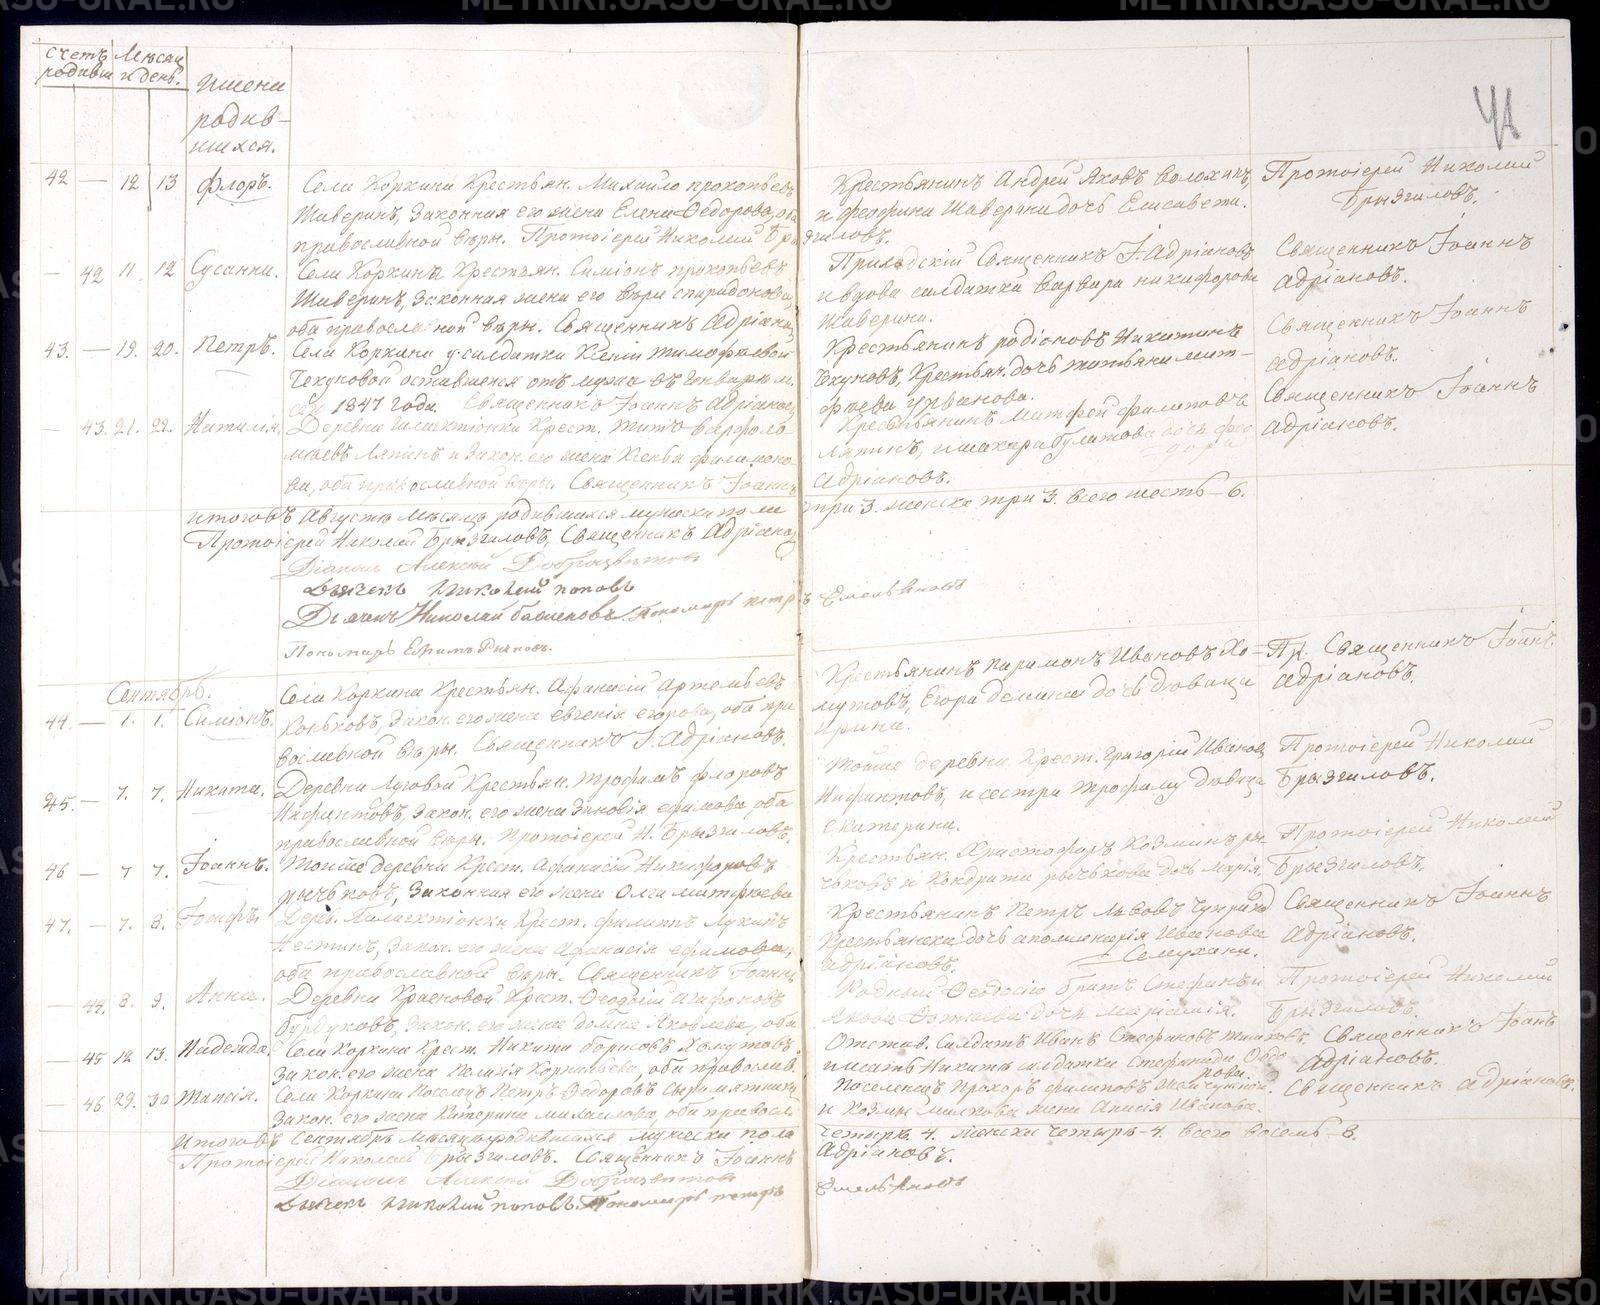 счетъ родивш
Мѣсяц и день.
имена родив-
шихся.
41
42 — 12 13 Флоръ. Села Коркина Крестьян. Михайло прокопьевъ
Шаверинъ, законная его жена Елена Федорова, оба
православной вѣры. Протоіерей Николай Брызгиловъ.
Крестьянинъ Андрей Яковъ Волохинъ,
и феофина Шаверина дочь Елисавета.
Протоіерей Николай
Брызгиловъ.
— 42 11. 12 Сусанна. Села Коркина Крестьян. Симіонъ прокопьевъ
Шаверинъ, законная жена его Вѣра спиридонова,
оба православной вѣры. Священникъ Адріановъ
Священникъ І. Адріановъ
и вдова солдатка Варвара никифорова
Шаверина.
Священникъ Іоаннъ
Адріановъ.
43. — 19. 20. Петръ. Села Коркина у солдатки Ксеніи тимофеевой
Чекуновой оставшейся отъ мужа въ Генварѣ м.
сего 1847 года. Священникъ Іоаннъ Адріановъ
Крестьянинъ родіоновъ Никитинъ
Чекуновъ, Крестьян. дочь татьяна мат-
фѣева Урванова.
Священникъ Іоаннъ
Адріановъ.
— 43. 21. 22. Наталія. Деревни Галактіонки Крест. титъ варфоло-
мѣевъ Ляпинъ и закон. его жена Ксенья филимоно-
ва, оба православной вѣры. Священникъ Іоаннъ
Адріановъ.
Крестьянинъ Матфей филиповъ
Ляпинъ
Священникъ Іоаннъ
Адріановъ.
итого въ Августѣ Мѣсяцѣ родившихся мужеска пола три 3. женска три 3. всего шесть — 6.
Протоіерей Николай Брызгиловъ, Священникъ Адріановъ
Діаконъ Алексѣй Доброцвѣтовъ
Дьячекъ Николай поповъ
Дьячекъ Николай Пономарь петръ Емельяновъ
Пономарь Ефимъ
Сентябрь.
44. — 1. 1. Симіонъ. Села Коркина Крестьян. Афанасій Артемьевъ
Коньковъ, закон. его жена евгенія егорова, оба пра-
вославной вѣры. Священникъ І. Адріановъ.
Крестьянинъ парамонъ Ивановъ Хо-
мутовъ, Егора Демина дочь дѣвица
Ирина.
Пр. Священникъ Іоаннъ
Адріановъ.
45. — 7. 7. Никита. Деревни Луговой Крестьян. Трофимъ флоровъ
Инфантовъ, закон. его жена Зиновія ефимова, оба
православной вѣры. Протоіерей Н. Брызгиловъ.
Тойже деревни Крест. Григорій Ивановъ
Инфантовъ, и сестра трофиму дѣвица
екатерина.
Протоіерей Николай
Брызгиловъ.
46 — 7 7. Іоаннъ. Тойже деревни Крест. Афанасій Никифоровъ
рычьковъ, законная его жена Олга матфѣева
Крестьян. Христофоръ Козминъ ры-
чьковъ и Кондрата рычькова дочь марія.
Протоіерей Николай
Брызгиловъ.
47. — 7. 8. Іосифъ. Дерев. Галактіонки Крест. филипъ Лукинъ
закон. его жена Афанасія ефимова,
оба православной вѣры. Священникъ Іоаннъ
Адріановъ.
Крестьянинъ Петръ Львовъ
Крестьянска дочь аполинарія Иванова
Семухина.
Священникъ Іоаннъ
Адріановъ.
— 44. 8. 9. Анна. Деревни Красновой Крест. Феодосій агафоновъ
Бурдуковъ, закон. его жена домна Яковлева, оба
Родной Феодосію братъ Стефанъ и
Якова дочь маріамія.
Протоіерей Николай
Брызгиловъ.
— 45 12 13. Надежда. Села Коркина Крест. Никита борисовъ Хомутовъ
закон. его жена Пелагія Корнильева, оба правосл.
Отстав. Солдатъ Иванъ Стефановъ
солдатки Стефанида
Священникъ Іоаннъ
Адріановъ.
— 46 29. 30 Таисія. Села Коркина Поселен. Петръ Федоровъ Сыромятник
закон. его жена Катерина михайлова, оба правосл.
Поселенецъ Прохоръ филиповъ
и Козмы жена Анисія Иванова.
Священникъ Адріановъ.
Итого въ Сентябрѣ Мѣсяцѣ родившихся мужеска пола четырѣ 4. женска четырѣ — 4. всего восемь — 8.
Протоіерей Николай Брызгиловъ. Священникъ Іоаннъ Адріановъ.
Діаконъ Алексѣй Доброцвѣтовъ
Дьячекъ Николай поповъ. Пономарь петръ Емельяновъ
METRIKI.GASO-URAL.RU